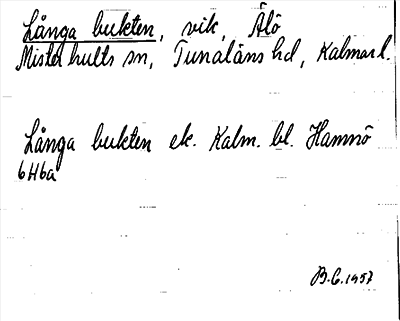 Långa bukten, vik, Älö
Misterhults sn, Tunaläns hd, Kalmar l.
Långa bukten ek. Kalm. bl. Hamnö
6H6a
B.G. 1957